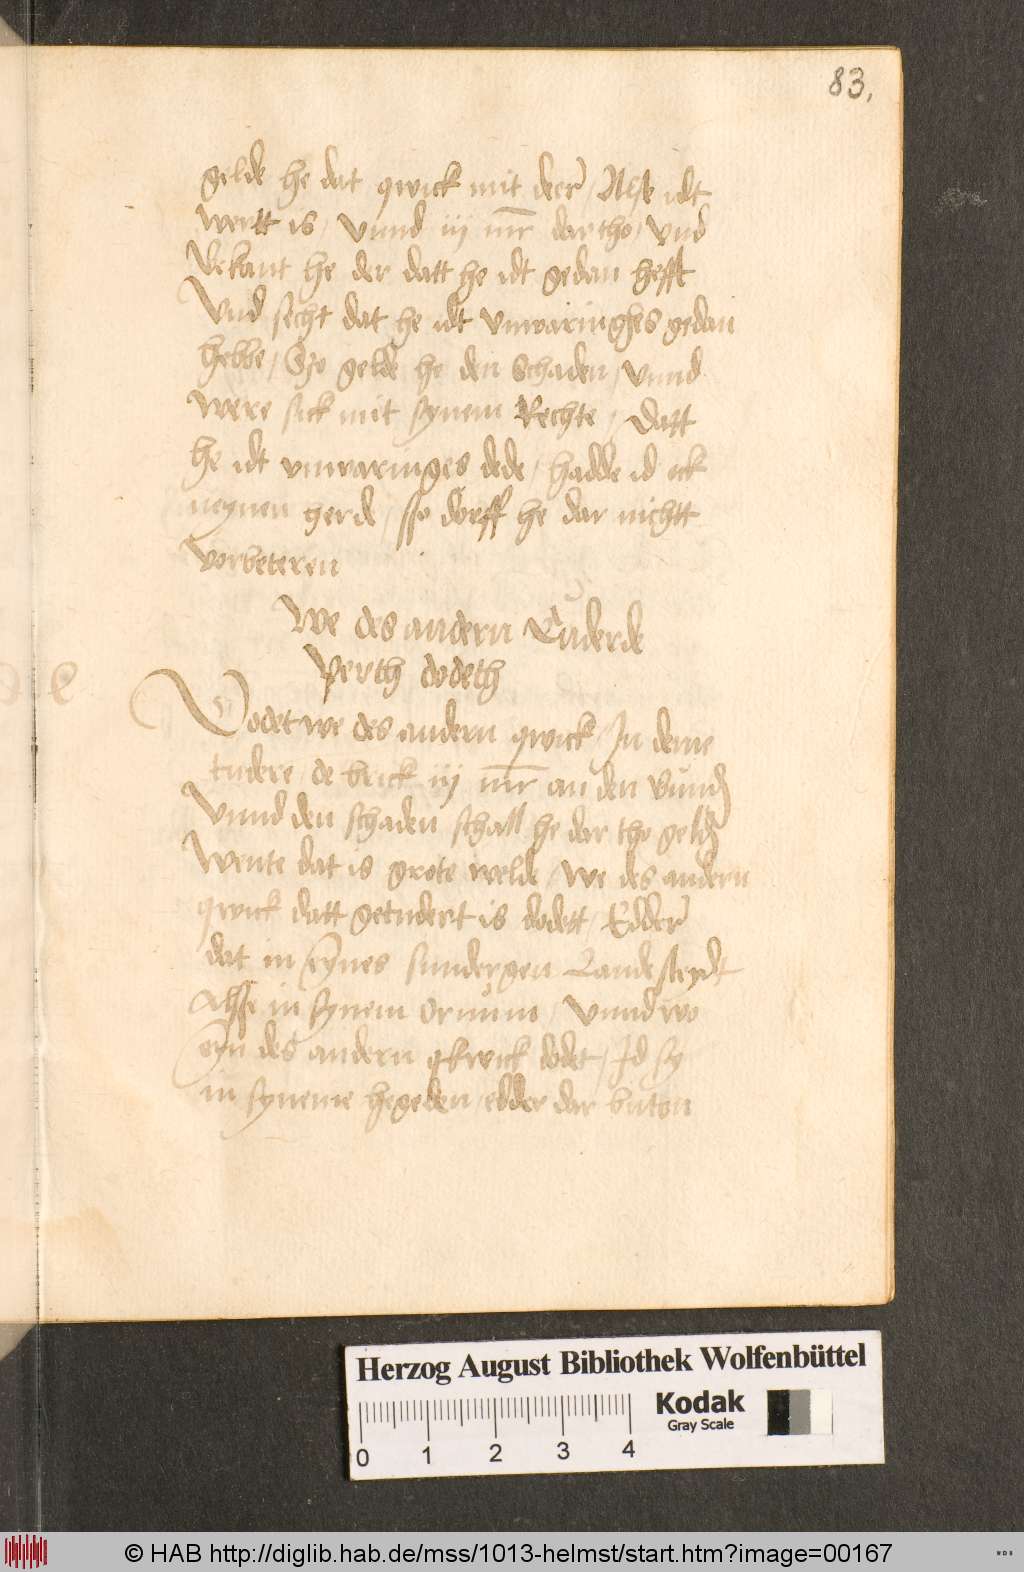 83.
gelde he dat qwick mit deer / Alse idt
wertt is / vnnd iij mr dar tho / vnd
Bekant he der datt he idt gedan hefft
Vnd secht dat he idt vnwaringhes gedan
hebbe / So gelde he den Schaden / vnnd
were sick mit synem Rechte / Datt
he idt vnwaringes dede / hadde id ock
neynen herde / sso dorff he dar nichtt
vorbeteren
We des andern Tuderde
Perth dodeth
Dodet we des andern qwick / In deme
tudere / de brick iij mr an den Bunden
Vnnd den schaden schall he dar tho gelden
Wente dat is grote welde / We des andern
qwick datt getudert is dodett / Edder
dat in eynes sundergen Lande steydt
Alsse in synem Ornum / Vnnd wo
eyn des andern qkwick dodet / Id sy
in syneme hegeden / edder dar buten
Herzog August Bibliothek Wolfenbüttel
Kodak
Gray Scale
0 1 2 3 4
© HAB http://diglib.hab.de/mss/1013-helmst/start.htm?image=00167